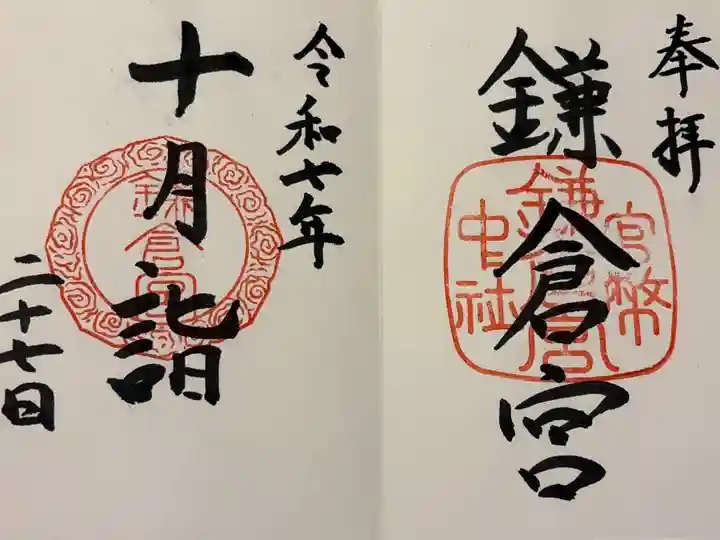 奉拝
鎌倉宮
官幣
鎌倉宮
中社
令和七年
十月詣
鎌倉宮
二十七日